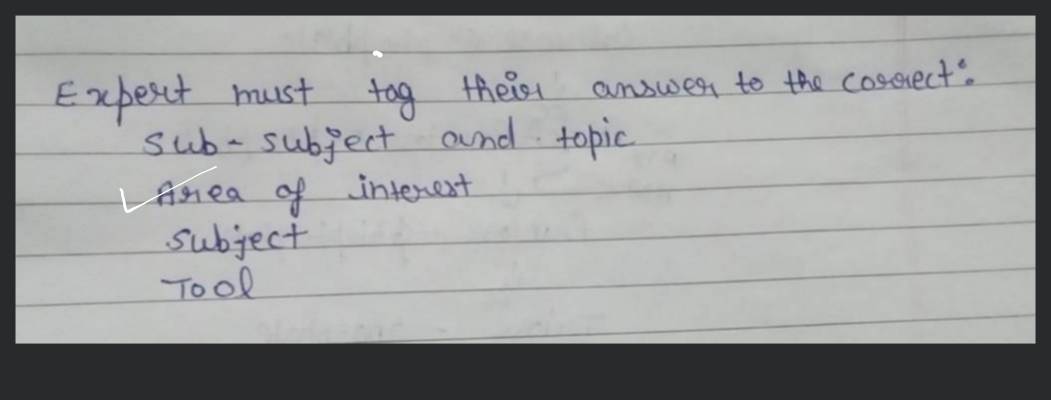 Expert must tag their answer to the correct:
Sub-subject and topic
Area of interest
Subject
Tool